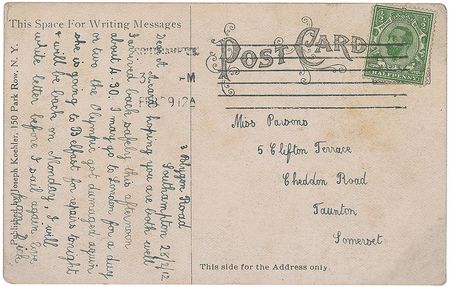 This Space For Writing Messages
POST CARD
HALFPENNY
Polygon Road
Southampton 28/2/12
hoping you are both well
I arrived back safely this afternoon
about 4-30 I may go to London for a day
or two the Olympic got damaged again
she is going to Belfast for repairs tonight
& will be back on Monday. I will
write letter before I sail again love
Miss Parsons
5 Clifton Terrace
Cheddon Road
Taunton
Somerset
This side for the Address only.
Joseph Koehler, 150 Park Row, N. Y.